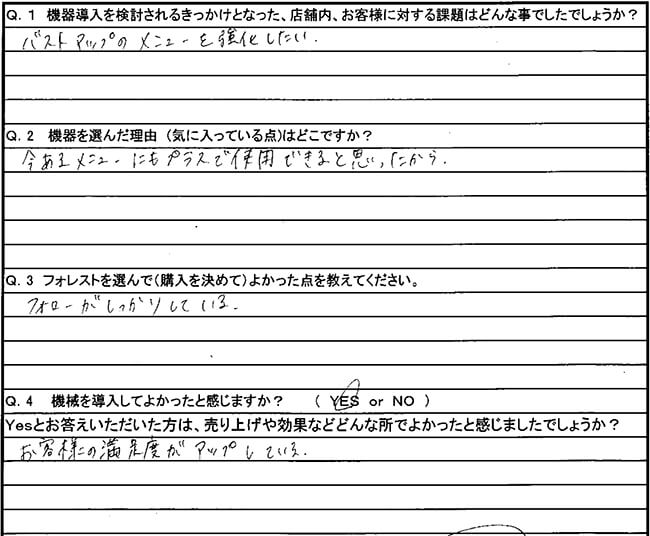 Q. 1 機器導入を検討されるきっかけとなった、店舗内、お客様に対する課題はどんな事でしたでしょうか？
バストアップのメニューを強化したい.
Q. 2 機器を選んだ理由 (気に入っている点)はどこですか？
今あるメニューにもプラスで使用できると思ったから.
Q. 3 フォレストを選んで(購入を決めて)よかった点を教えてください。
フォローがしっかりしている.
Q. 4 機械を導入してよかったと感じますか？ ( YES or NO )
Yesとお答えいただいた方は、売り上げや効果などどんな所でよかったと感じましたでしょうか？
お客様の満足度がアップしている.